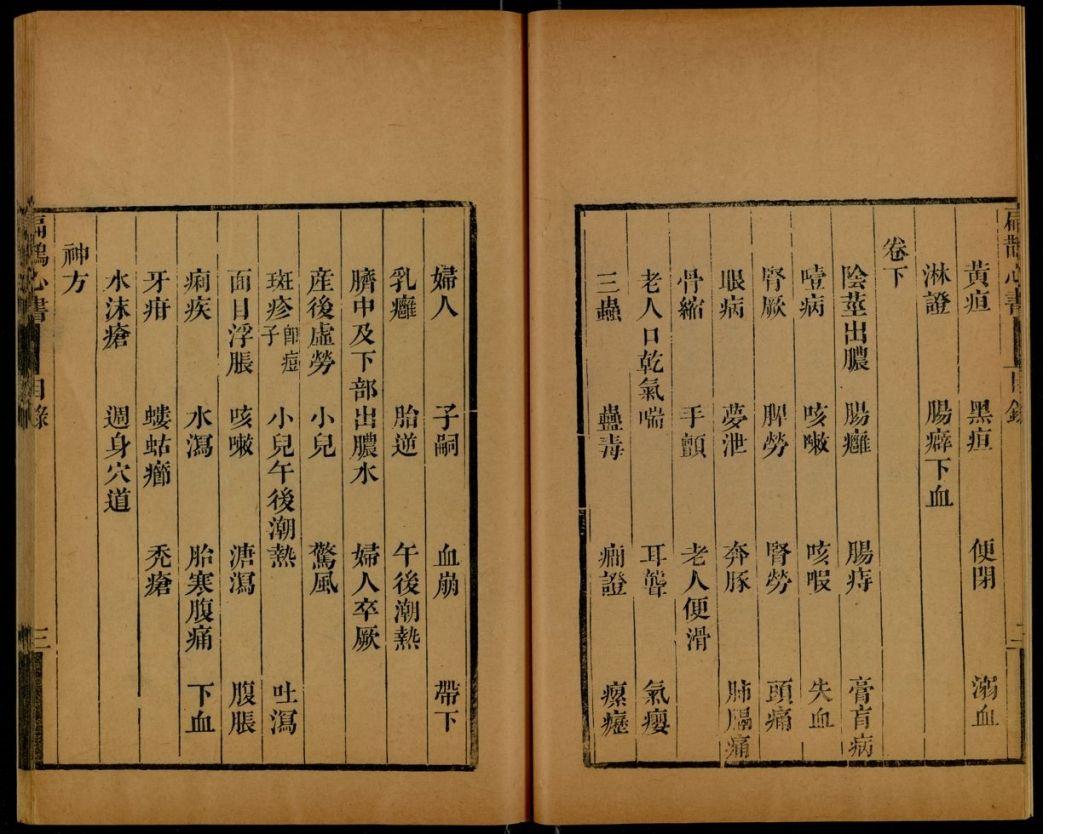 黃疸 黑疸 便閉 溺血
淋證 腸癖下血
卷下
陰莖出膿 腸癰 腸痔 膏肓病
噎病 咳嗽 咳暇 失血
腎厥 脾勞 腎勞 頭痛
眼病 夢泄 奔豚 肺膈痛
骨縮 手顫 老人便滑
老人口乾氣喘 耳聾 氣癭
三蟲 蠱毒 痼證 瘰癧
婦人 子嗣 血崩 帶下
乳癰 胎逆 午後潮熱
臍中及下部出膿水 婦人卒厥
産後虛勞 小兒 驚風
斑疹即痘子 小兒午後潮熱 吐瀉
面目浮脹 咳嗽 溏瀉 腹脹
痢疾 水瀉 胎寒腹痛 下血
牙疳 螻蛄癤 禿瘡
水沫瘡 週身穴道
神方
扁鵲心書 目錄 三